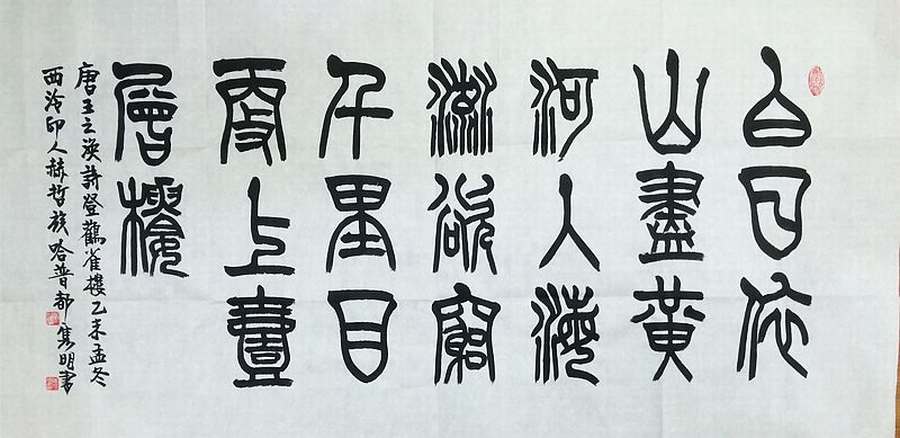 白日依
山盡黃
河入海
流欲窮
千里目
更上壹
層樓
唐王之渙詩登鸛雀樓乙未孟冬
西泠印人赫哲族哈普都隽明書